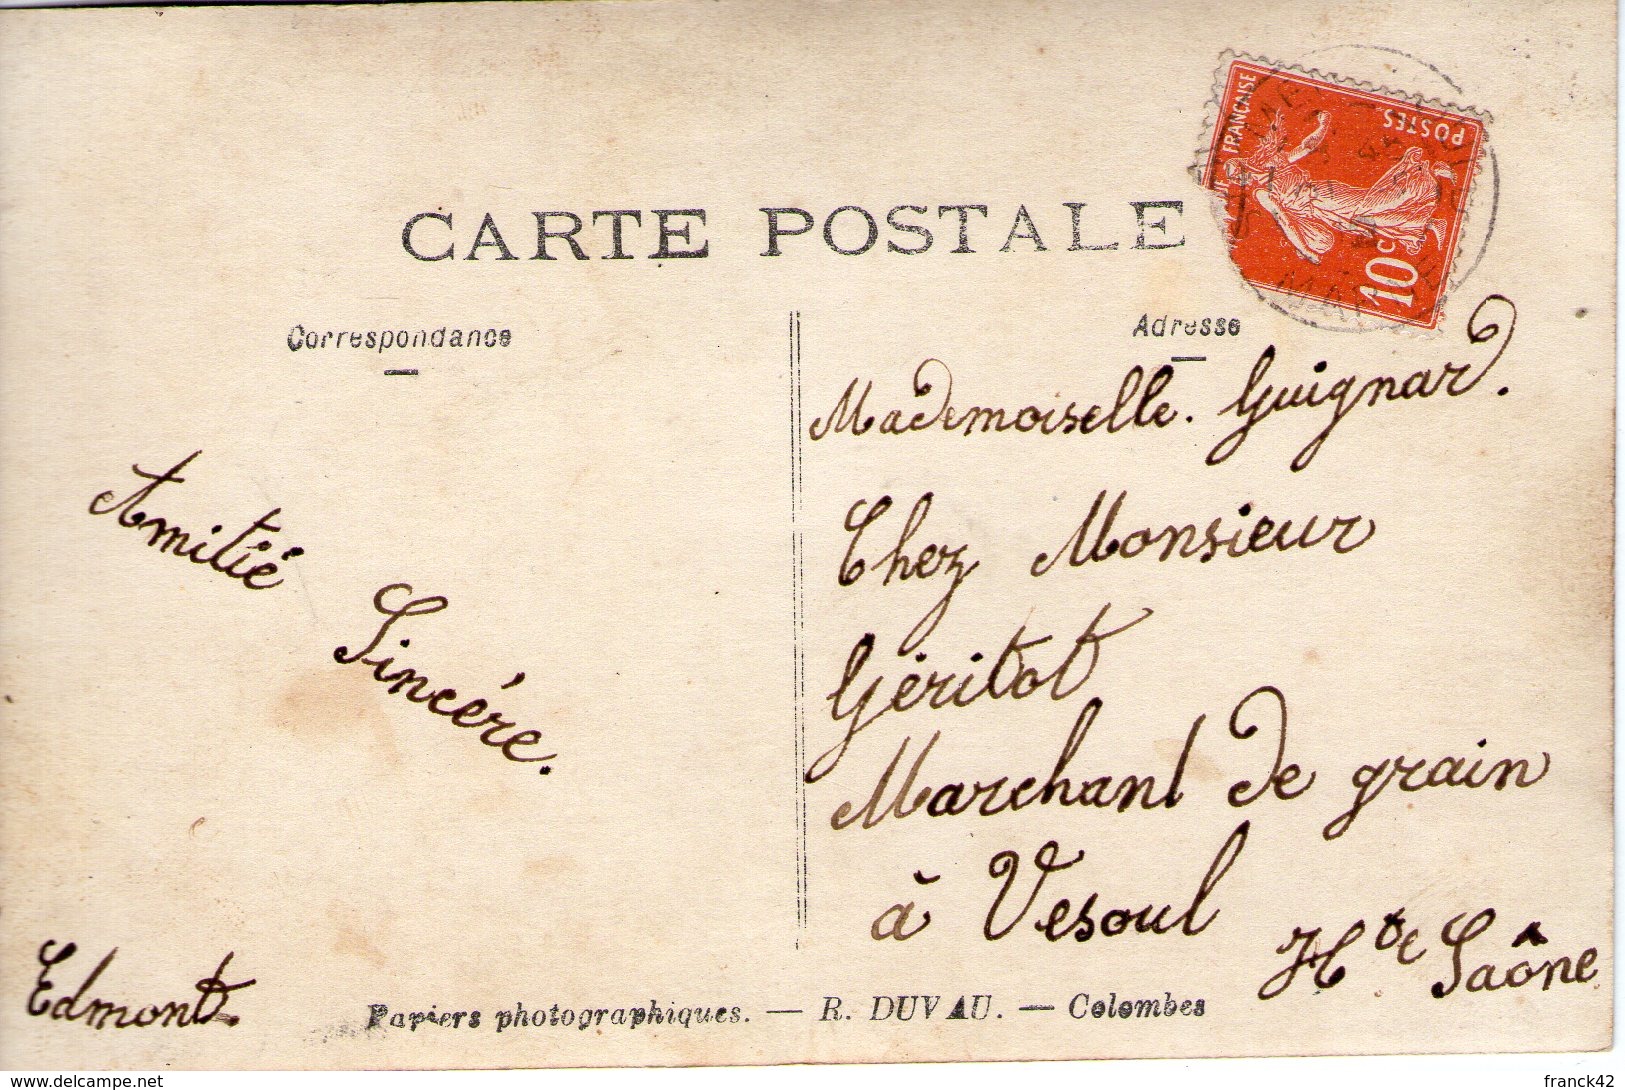 CARTE POSTALE
Correspondance
Adresse
FRANÇAISE
POSTES
10c
Amitié
Sincére.
Edmont.
Mademoiselle. Guignard.
Chez Monsieur
Géritot
Marchant de grain
à Vesoul
Hte Saône
Papiers photographiques. — R. DUVAU. — Colombes
www.delcampe.net
franck42